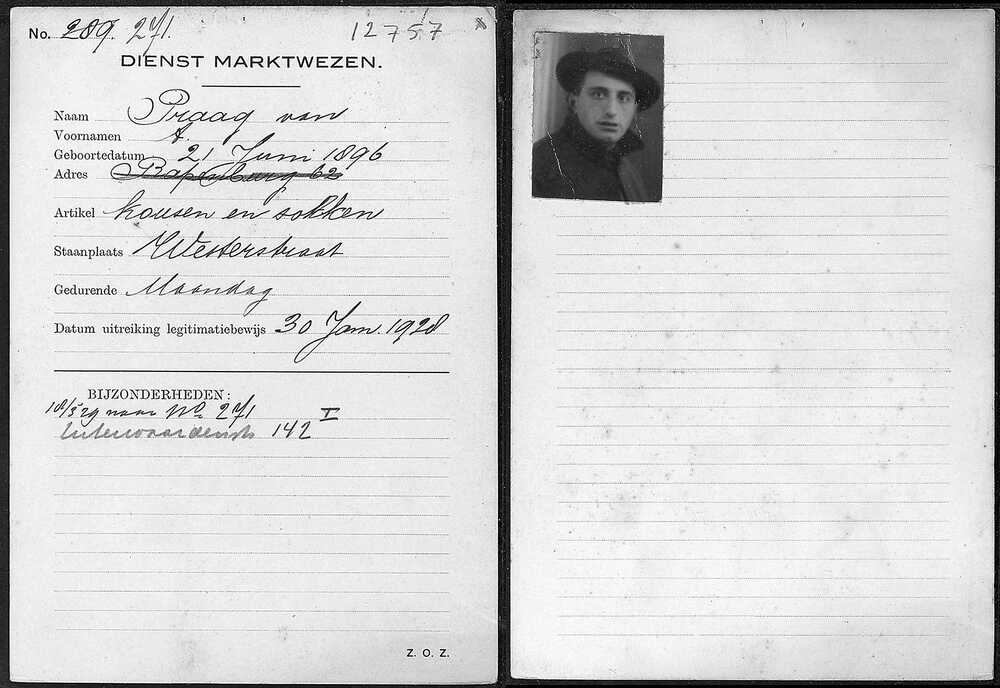 No. 289. 271. 12757 x
DIENST MARKTWEZEN.
Naam Praag van
Voornamen A.
Geboortedatum 21 Juni 1896
Adres Batenburg 62
Artikel kousen en sokken
Staanplaats Westerstraat
Gedurende Maandag
Datum uitreiking legitimatiebewijs 30 Jan. 1928
BIJZONDERHEDEN:
18/5 29 naar No. 271
142 I
Z. O. Z.